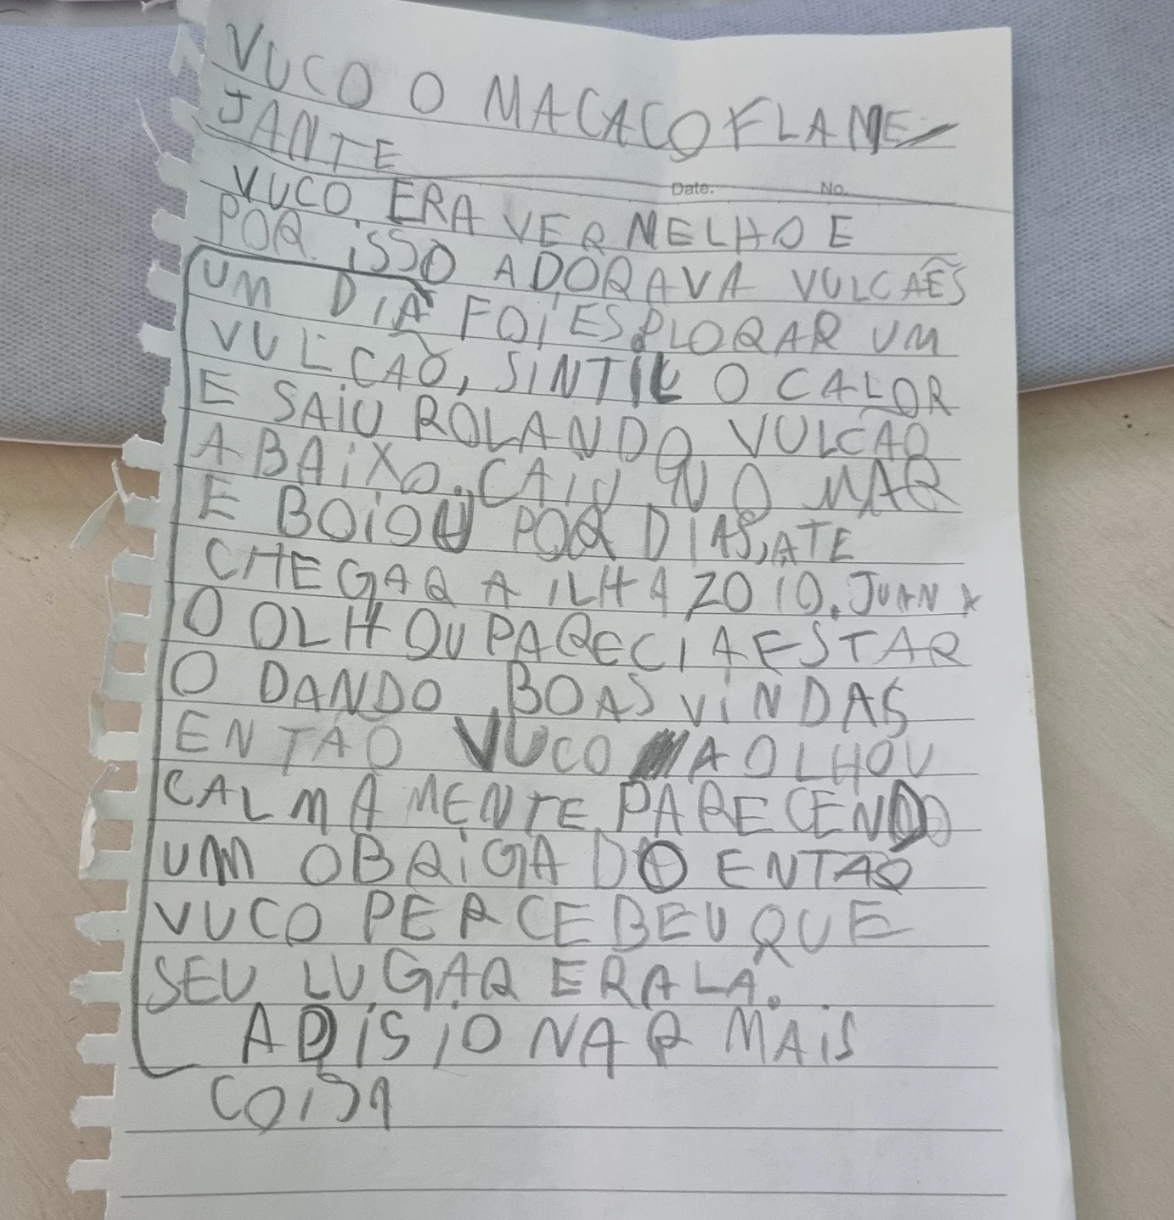 VUCO O MACACO FLAME-
JANTE
Date. No.
VUCO ERA VERMELHO E
POR ISSO ADORAVA VULCÃES
UM DIA FOI ESPLORAR UM
VULCAO, SINTIL O CALOR
E SAIU ROLANDO VULCAO
ABAIXO. CAIU NO MAR
E BOIOU POR DIAS, ATE
CHEGAR A ILHA ZOIO. JUAN
O OLHOU PARECIA ESTAR
O DANDO BOAS VINDAS
ENTAO VUCO A OLHOU
CALMAMENTE PARECENDO
UM OBRIGADO ENTAO
VUCO PERCEBEU QUE
SEU LUGAR ERA LA.
ADISIONAR MAIS
COISA